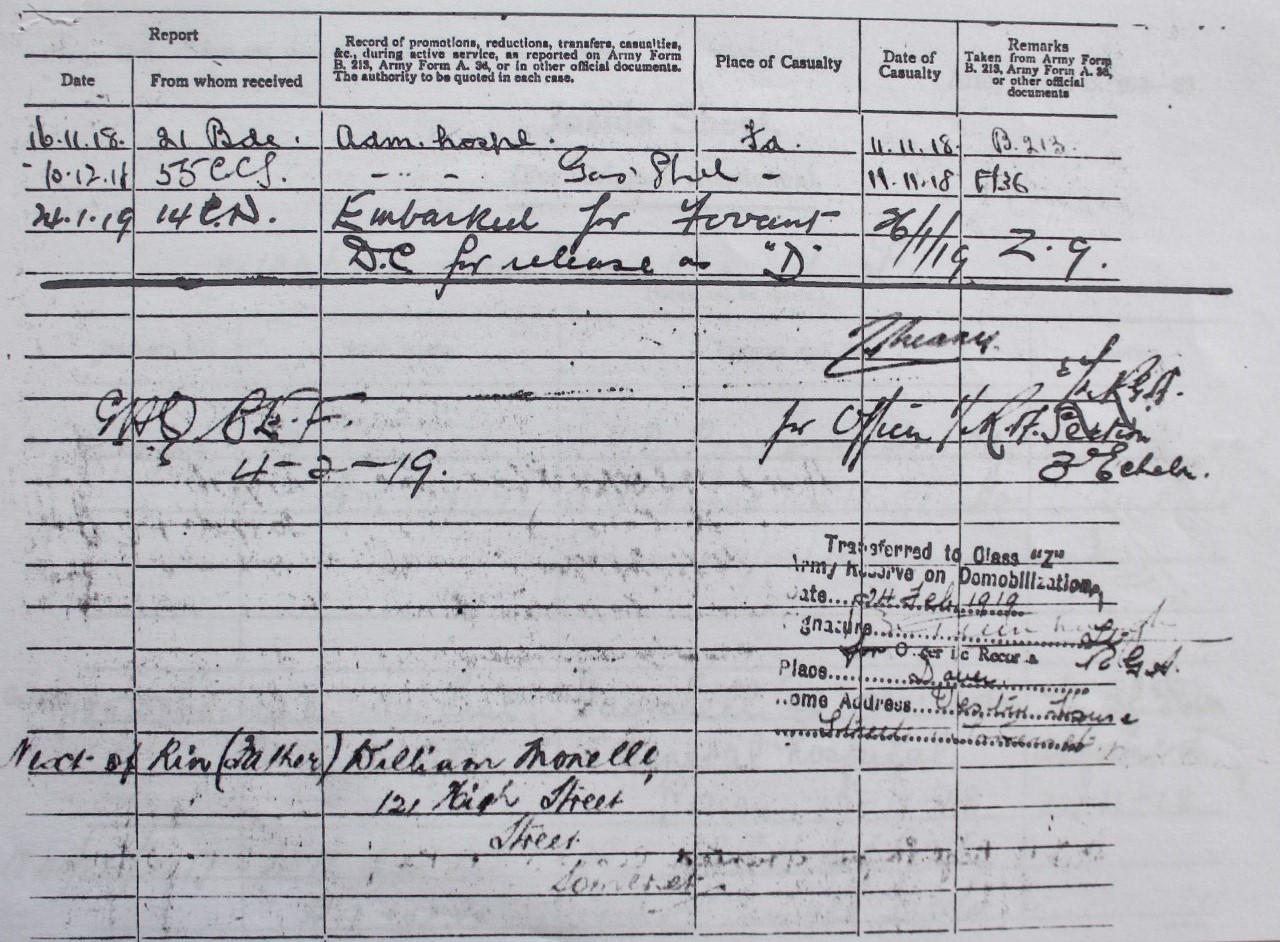 Report
Record of promotions, reductions, transfers, casualties, &c., during active service, as reported on Army Form B. 213, Army Form A. 36, or in other official documents. The authority to be quoted in each case.
Place of Casualty
Date of Casualty
Remarks Taken from Army Form B. 213, Army Form A. 36, or other official documents
Date From whom received
16.11.18. 21 Bde. Adm. hospl. Fa. 11.11.18. B.213
10.12.18 55 CCS. - - - Gas Shel - 11.11.18
24.1.19 14 Embarked for Fovant 26/1/19 Z.9.
D.C for release as "D"
R.G.A.
GHQ B.E.F. for Officer i/c R.A. Section
4-2-19. 3rd Echeln.
Transferred to Class "Z"
Army Reserve on Demobilization
Date... 24 Feb 1919
Signature...
for Officer i/c Records R.G.A.
Place... Dover
Home Address... House
Street Somerset
Next of Kin (Father) William
121 High Street
Street
Somerset